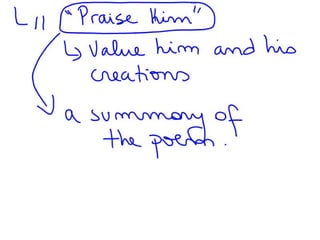 L11 "Praise Him"
↳ Value him and his
creations
a summary of
the poem.